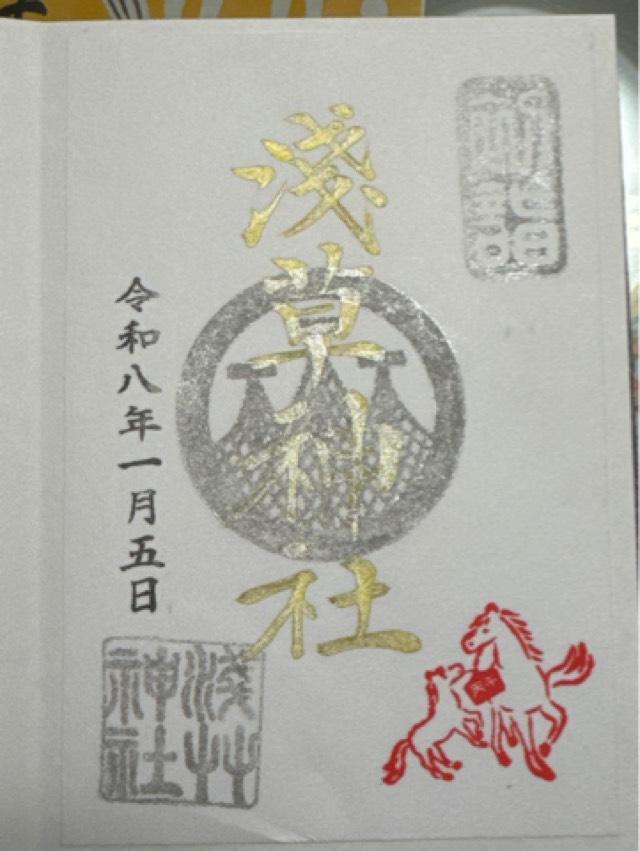 淺草神社
令和八年一月五日
淺艸
神社